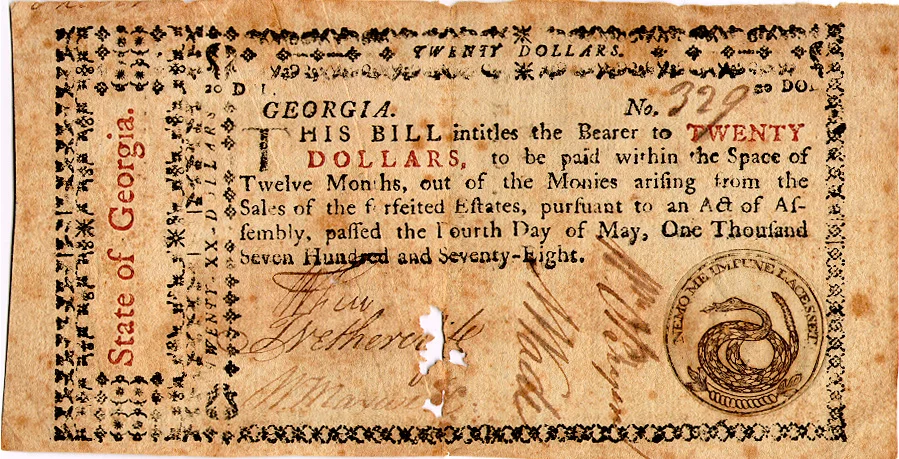 TWENTY DOLLARS.
State of Georgia.
TWENTY-XX-DOLLARS
20 DO.
GEORGIA. No. 329
THIS BILL intitles the Bearer to TWENTY
DOLLARS, to be paid within the Space of
Twelve Months, out of the Monies ariſing from the
Sales of the forfeited Eſtates, purſuant to an Act of Aſ-
ſembly, paſſed the Fourth Day of May, One Thouſand
Seven Hundred and Seventy-Eight.
NEMO ME IMPUNE LACESSET.